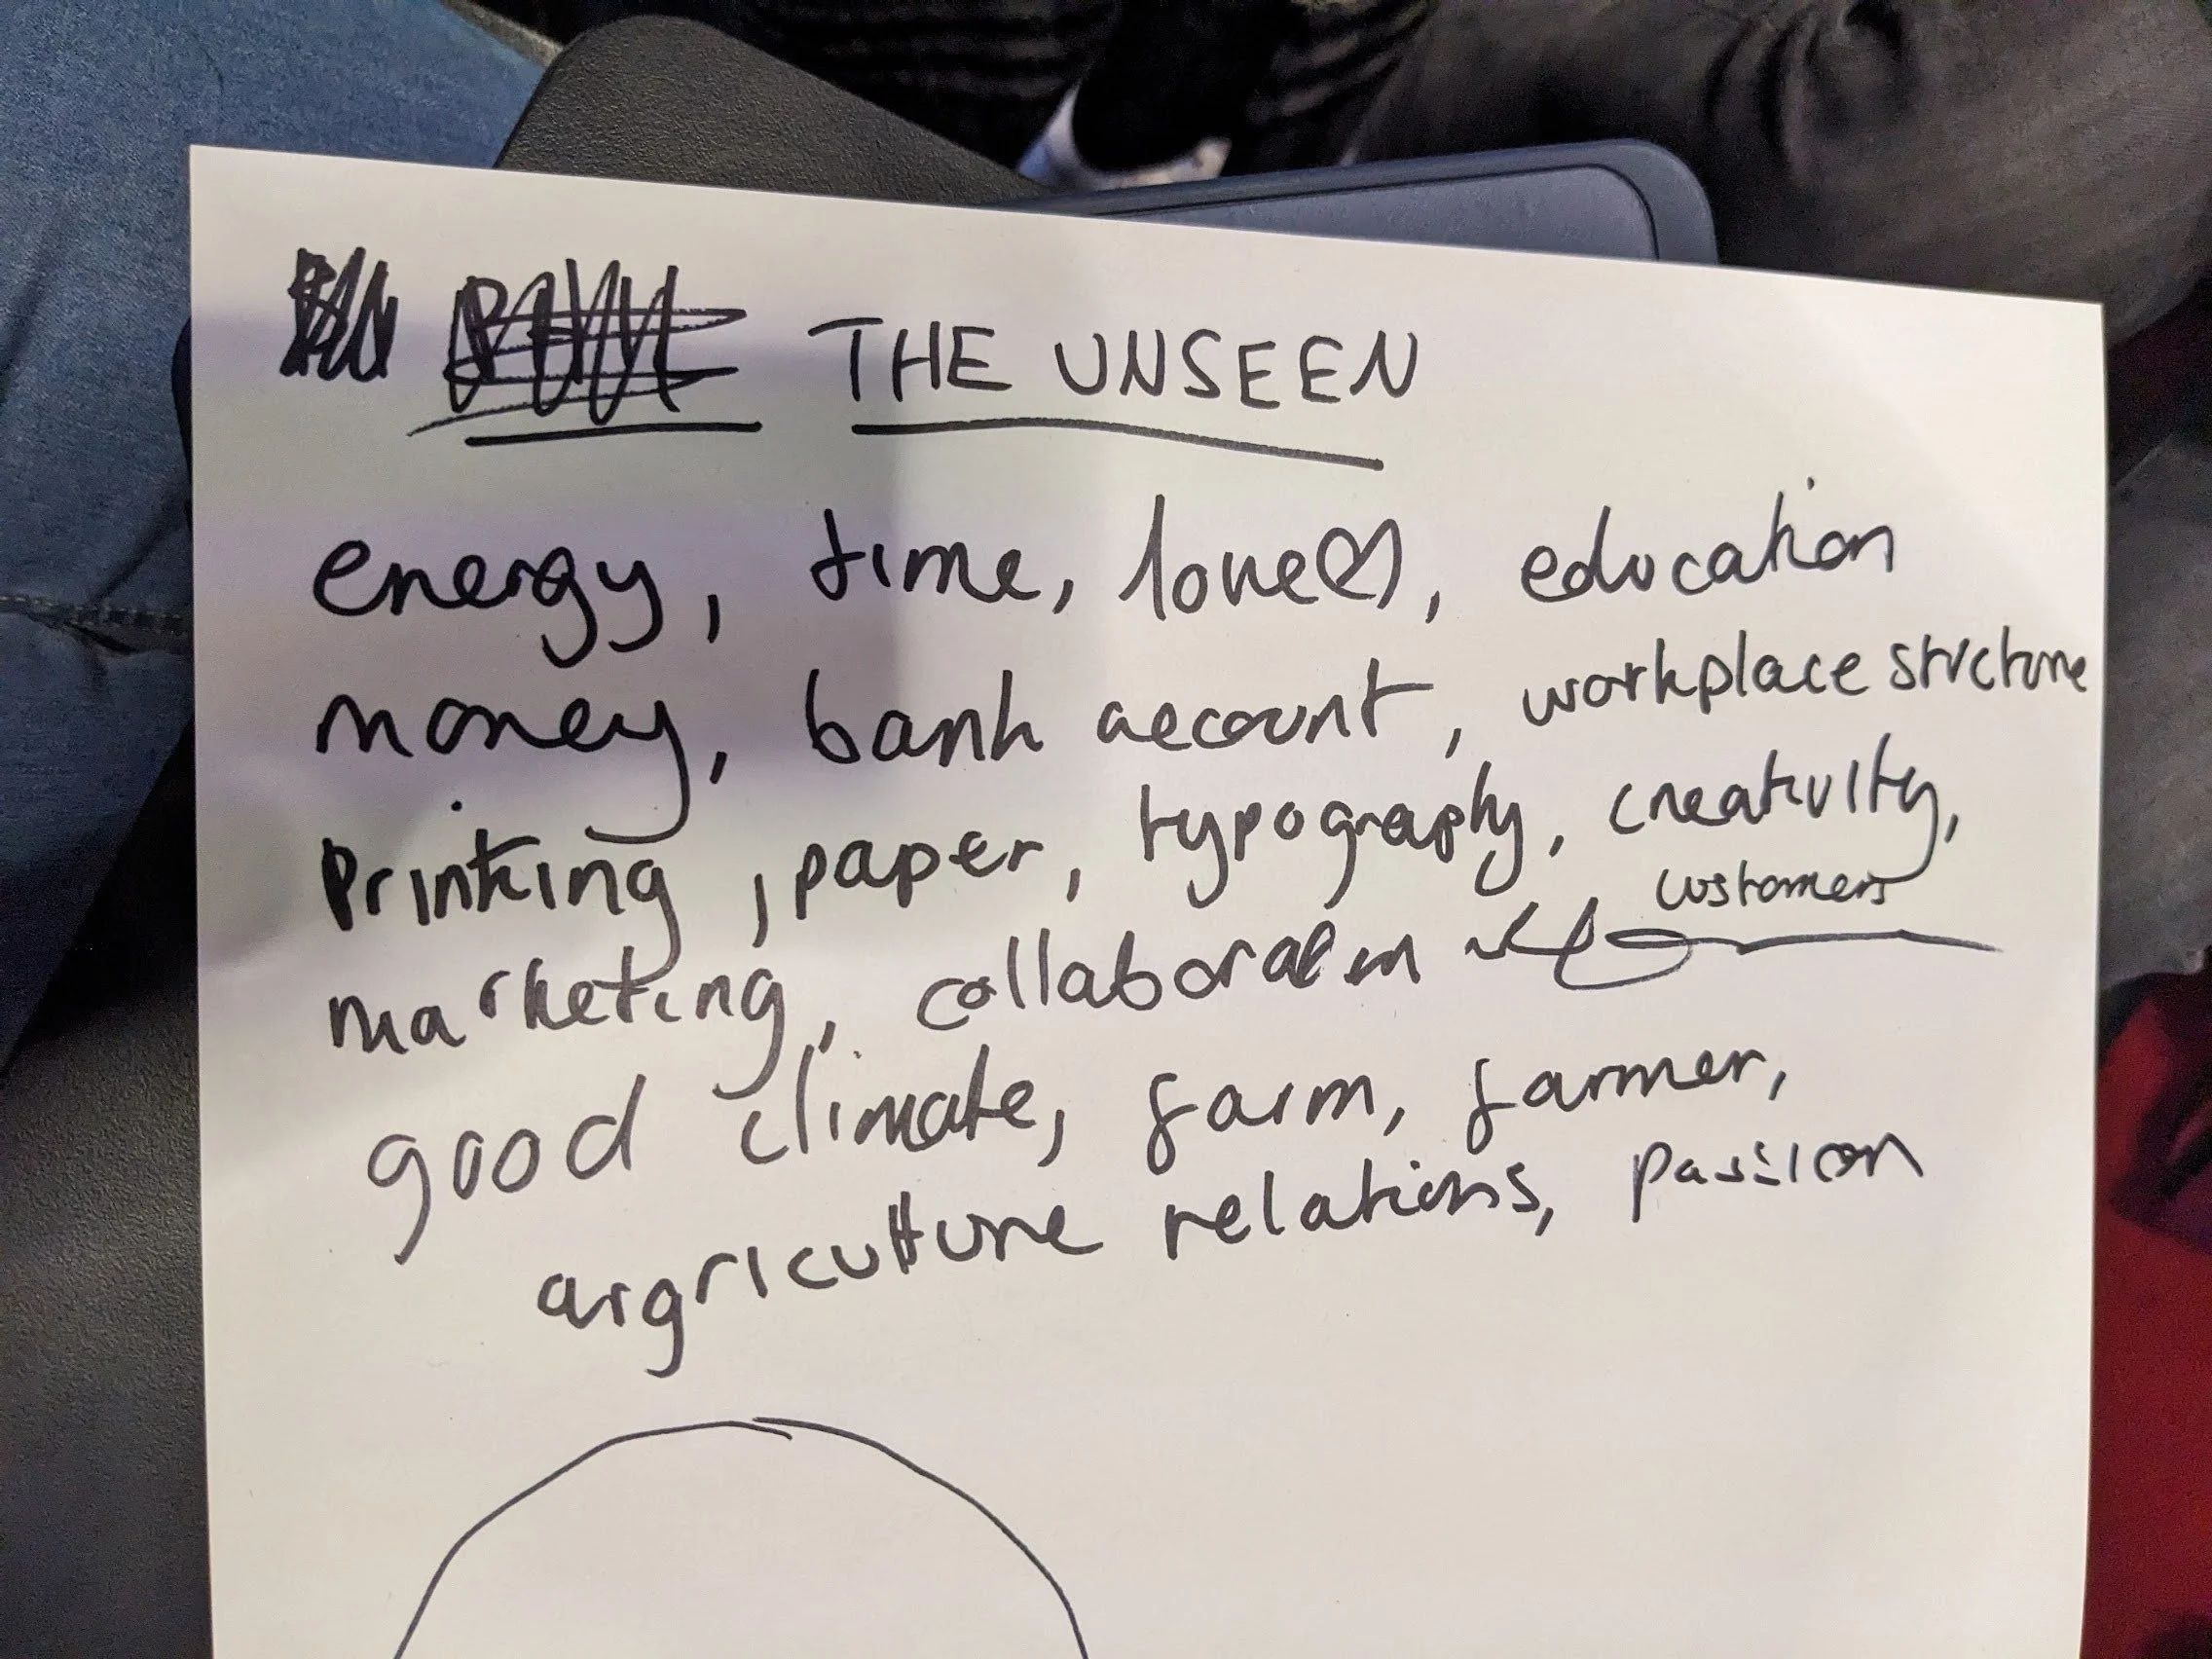 THE UNSEEN
energy, time, love♡, education
money, bank account, workplace structure
Printing, paper, typography, creativity,
customers
marketing, collaboration
good climate, farm, farmer,
argriculture relations, passion